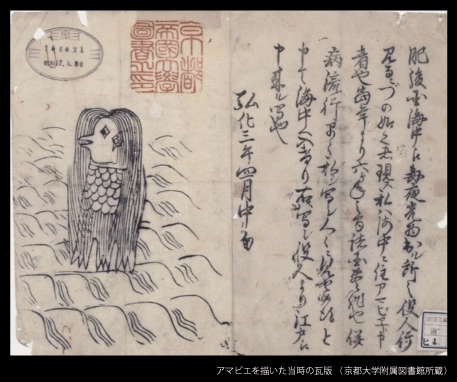 肥後国海中え毎夜光物出ル所之役人行
見るニづの如く者現ス私ハ海中ニ住アマビヱト申
者也当年より六ヶ年之間諸国豊作也併
病流行早々私ヲ写シ人々ニ見せ候得と
申て海中へ入けり右ハ写シ役人より江戸え
申来ル写也
弘化三年四月中旬
京都
帝國大學
圖書之印
アマビエを描いた当時の瓦版 （京都大学附属図書館所蔵）